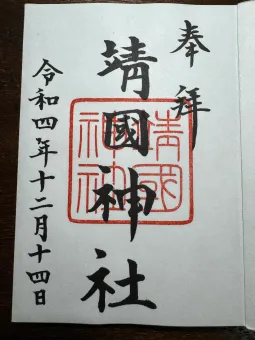 奉拜
靖國神社
靖國
神社
令和四年十二月十四日